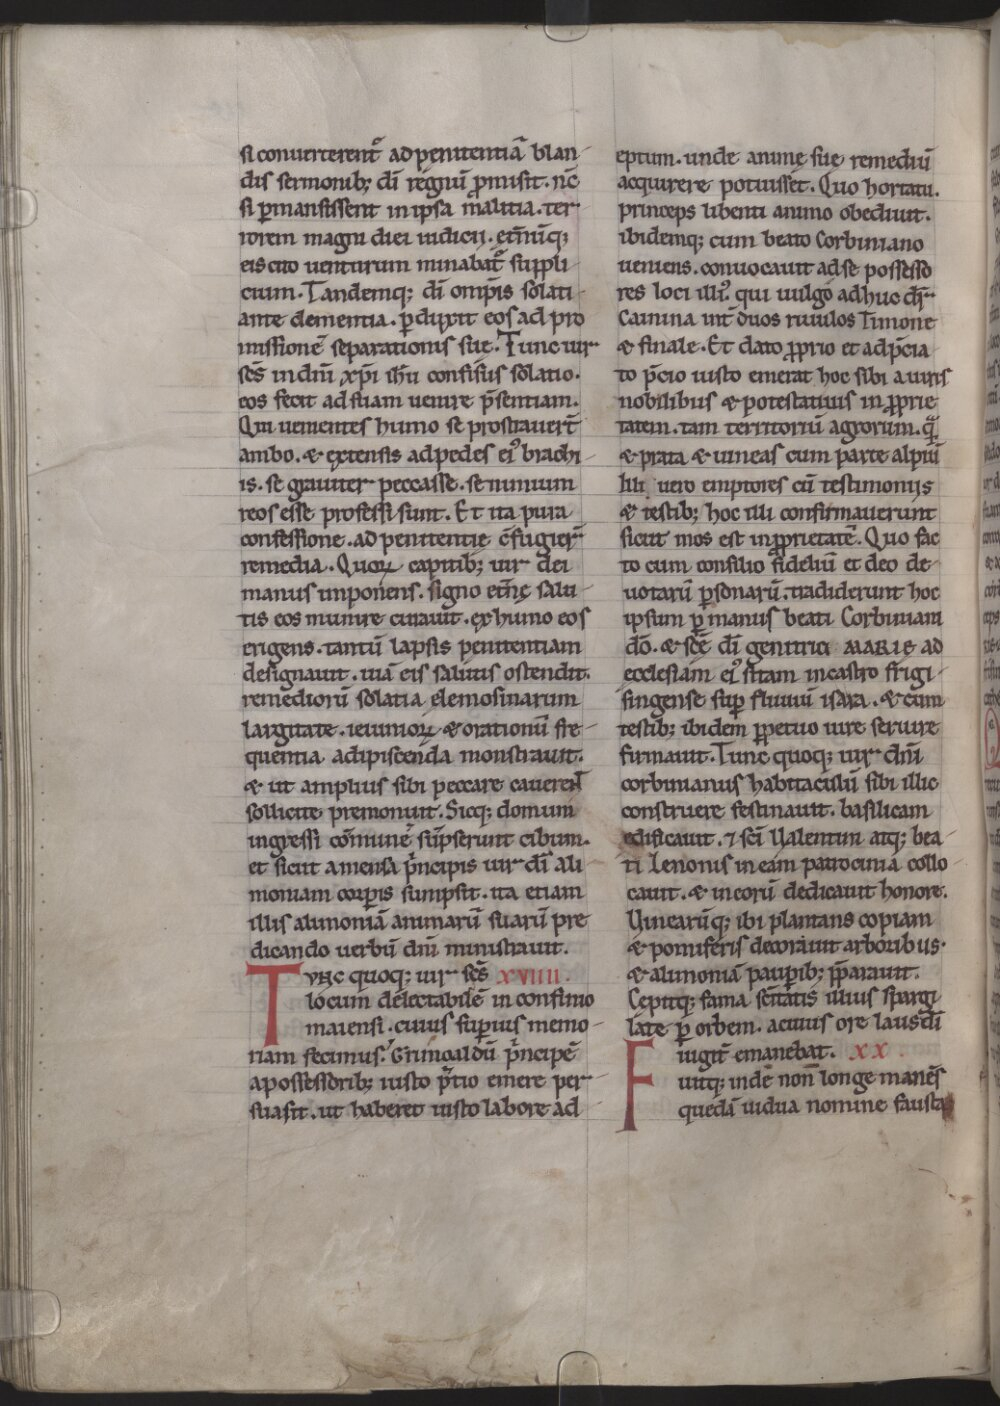 si conuerterent᷑ ad penitentiā blan-
dis sermonib; di regnū ꝓmisit. nc̄
si ꝑmansissent in ipsa malitia. ter-
rorem magni diei iudicii. et̄nūq;
eis cito uenturum minabat᷑ suppli-
cium. Tandemq; dī omp̄is solati-
ante clementia. ꝑduxit eos ad pro
missionē separationis sue. Tunc uir-
scs̄ in dn̄i xp̄i ih̄u confisus solatio.
eos fecit ad suam uenire p̄sentiam.
Qui uenientes humo se prostrauer̄t
ambo. & extensis ad pedes ei᷒ brachi-
is. se grauiter peccasse. se nimium
reos esse professi sunt. Et ita pura
confessione. ad penitentię c̄fugier̄
remedia. Quoꝝ capitib; uir dei
manus imponens. signo et̄nę salu-
tis eos munire curauit. ex humo eos
erigens. tantū lapsis penitentiam
designauit. uiā eis salutis ostendit.
remediorū solatia elemosinarum
largitate. ieiunioꝝ & orationū fre-
quentia adipiscenda monstrauit.
& ut amplius sibi peccare cauerent
sollicite premonuit. Sicq; domum
ingressi cōmunē sūpserunt cibum.
et sicut a mensa p̄ncipis uir dī ali
moniam corꝑis sumpsit. ita etiam
illis alimoniā animarū suarū pre
dicando uerbū dn̄i ministrauit.
Tvnc quoq; uir scs̄ xviiii.
locum delectabilē in confinio
maiensi. cuius suꝑius memo-
riam fecimus. Grimoaldū p̄ncipē
a possessorib; iusto p̄tio emere per-
suasit. ut haberet iusto labore ad
eptum. unde animę sue remediū
acquirere potuisset. Quo hortatu.
princeps libenti animo obediuit.
ibidemq; cum beato Corbiniano
ueniens. conuocauit ad se possesso
res loci illi᷒. qui uulgo adhuc dr̄
Camina int̄ duos riuulos Timone
& finale. Et dato ꝓprio et ad p̄cia
to p̄cio iusto emerat hoc sibi a uiris
nobilibus & potestatiuis in ꝓprie
tatem. tam territoriū agrorum. q̄
& prata & uineas cum parte alpiū
Illi uero emptores cū testimoniis
& testib; hoc illi confirmauerunt
sicut mos est in ꝓprietatē. Quo fac
to cum consilio fideliū et deo de-
uotarū ꝑsonarū. tradiderunt hoc
ipsum ꝑ manus beati Corbiniani
dō. & scē dī genitrici MARIE ad
ecclesiam ei᷒ sitam in castro frigi-
singense suꝑ fluuiū isara. & cum
testib; ibidem ꝑpetuo iure seruire
firmauit. Tunc quoq; uir dn̄i
corbinianus habitaculū sibi illic
construere festinauit. basilicam
edificauit. ⁊ sc̄i Ualentini atq; bea-
ti Zenonis in eam patrocinia collo
cauit. & in eorū dedicauit honore.
Uinearūq; ibi plantans copiam
& pomiferis decorauit arboribus.
& alimoniā pauꝑib; p̄parauit.
Cepitq; fama sc̄itatis illius spargi
late ꝑ orbem. ac cuius ore laus dī
iugit̄ emanebat. xx.
Fuitq; inde non longe manēs
quedā uidua nomine fausta